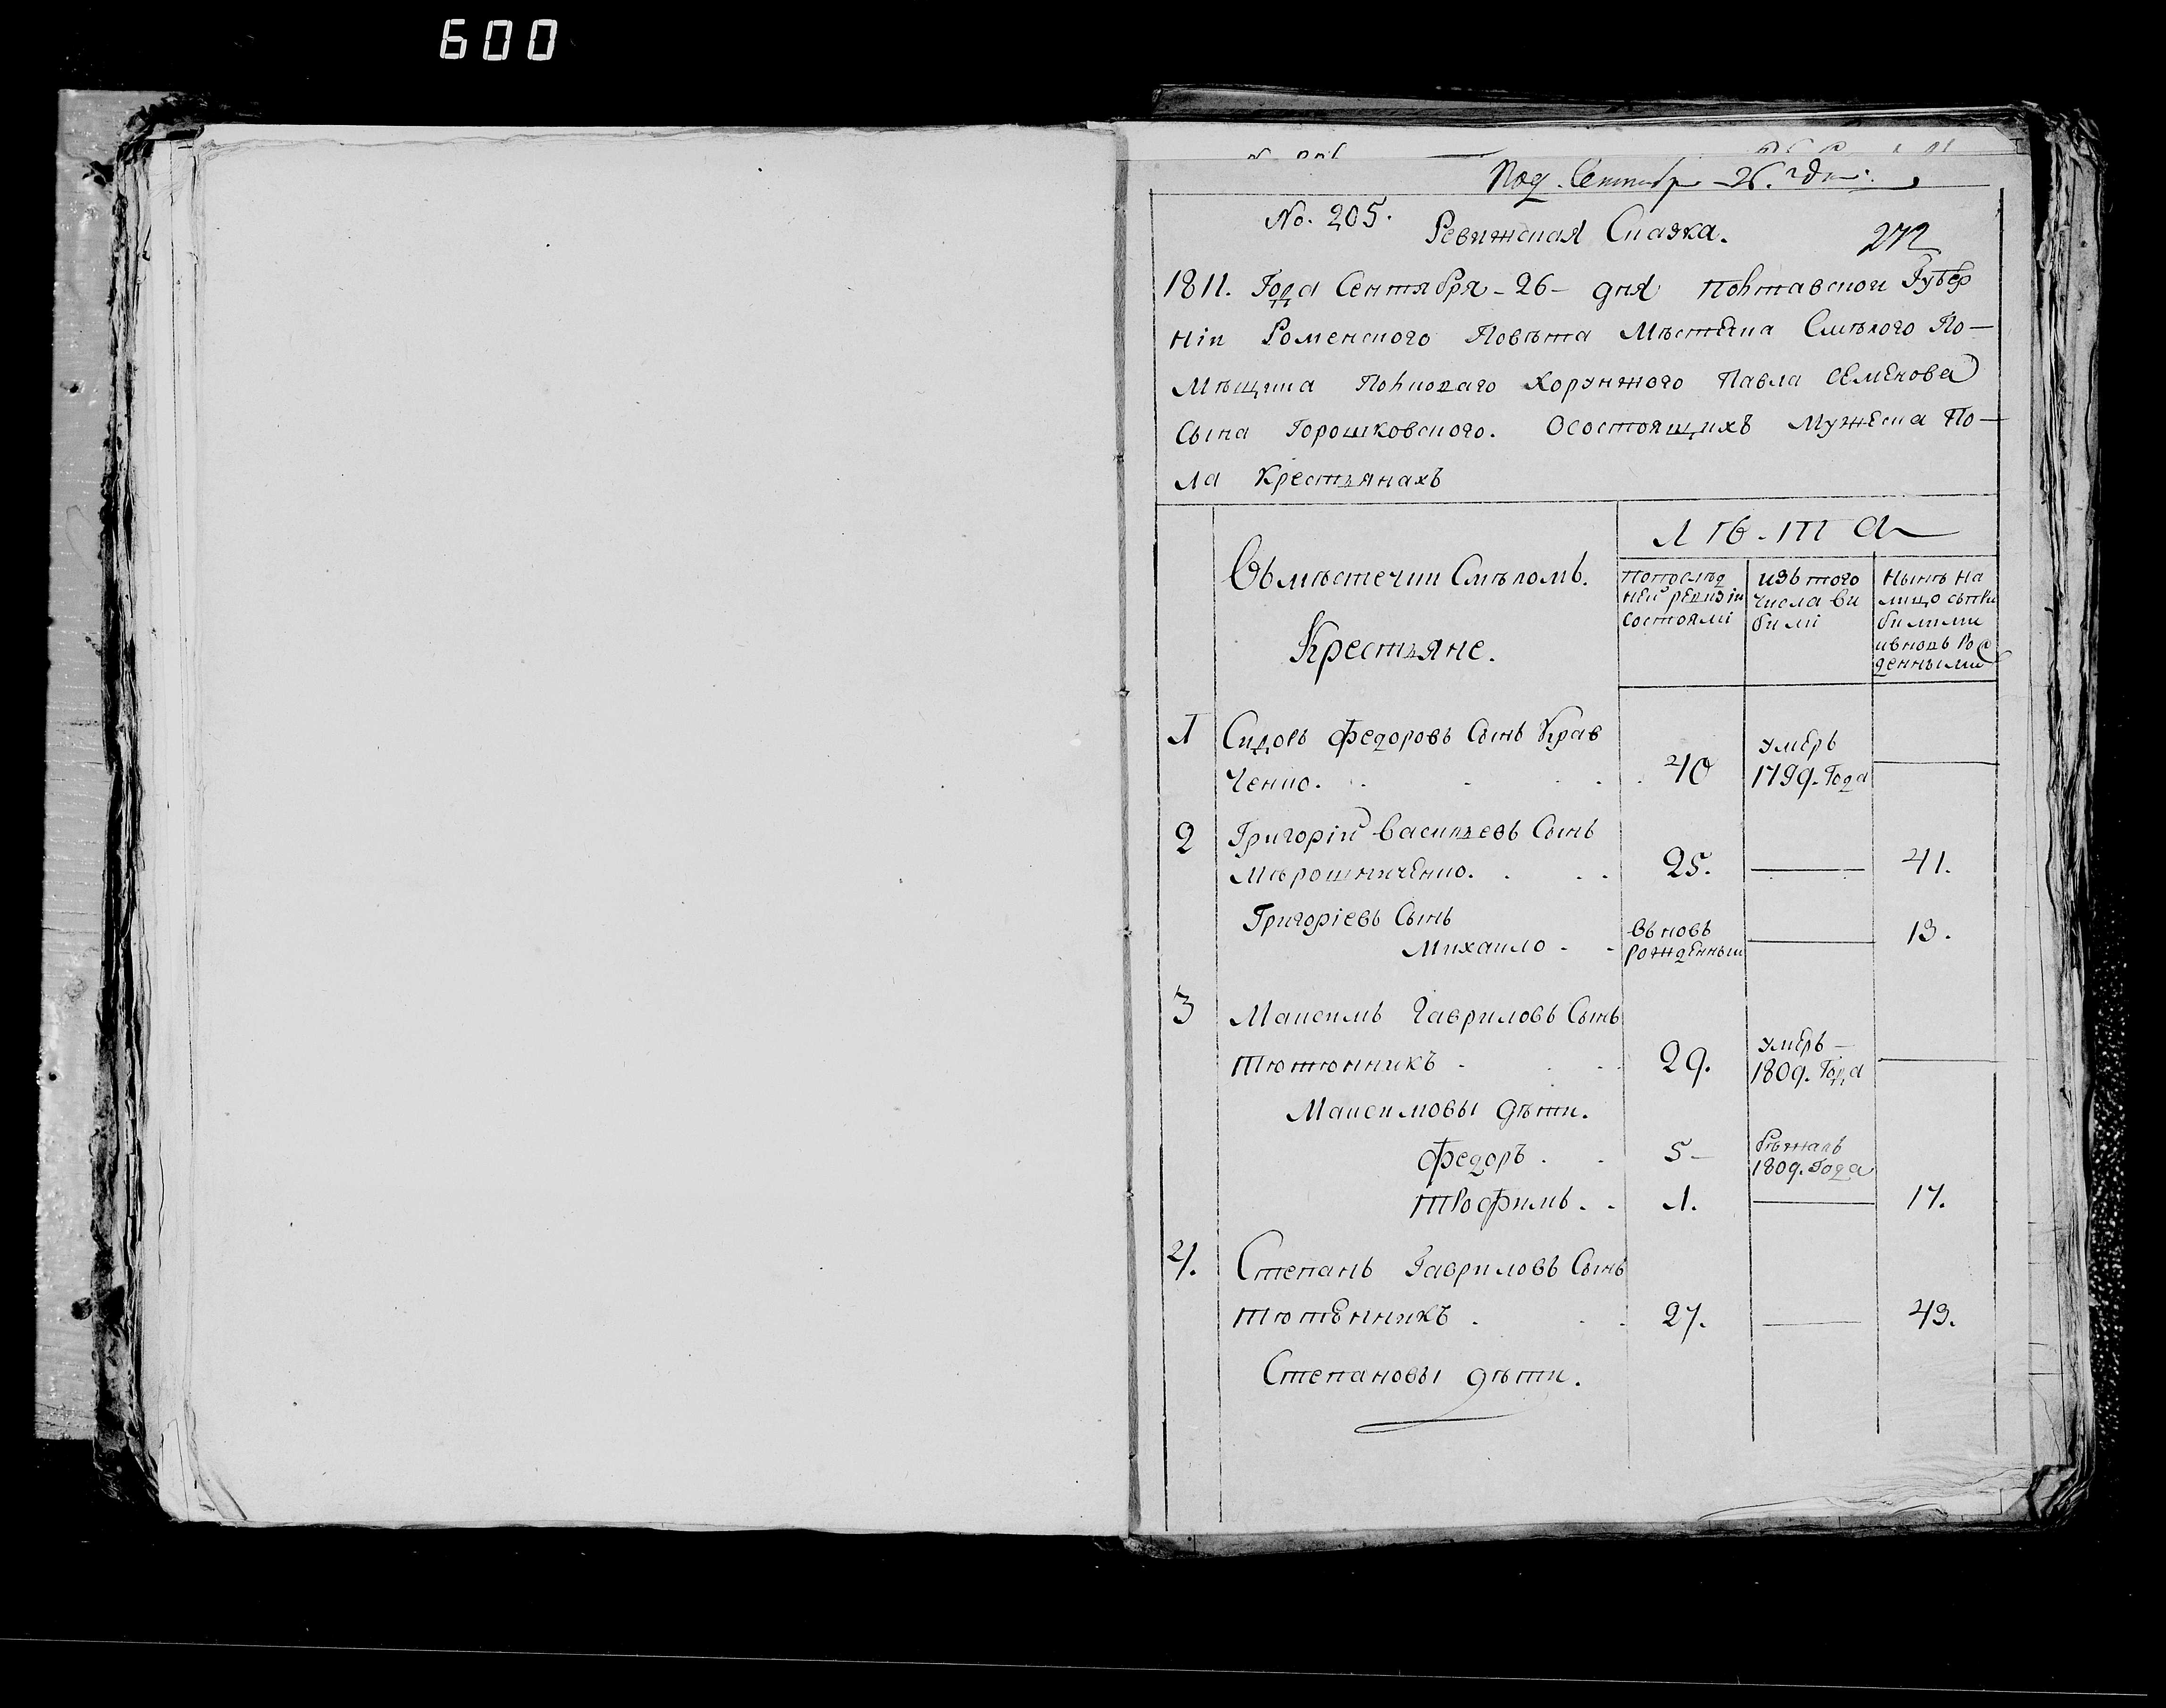 600
Под. Сентября 26. дня.
No. 205.
Ревижская Сказка.
272
1811. Года Сентября - 26 - дня Полтавской Губер
нiи Роменского Повѣта Мѣстечка Смѣлого По-
мѣщика Полковаго Хорунжого Павла Семенова
Сына Горошковского. Осостоящихъ Мужеска По-
ла Крестьянахъ
Лѣта
Вьмѣстечки Смѣломъ.
Крестьяне.
попослѣд
ней ревизiи
состояли
изь того
числа ви
били
нынѣ на
лицо сьпри
билими
ивновь рож
денными
1 Сидорь Федоровь Сынь Крав
ченко. 40 умерь 1799. Года
2 Григорiй Васильевь Сынь
Мѣрошниченко. 25. 41.
Григорiевь Сынь
Михаило - вьновь рожденный 13.
3 Максимь Гавриловь Сынь
Тютюнникъ - 29. умерь - 1809. Года
Максимовы дѣти.
Федорь. 5 - бѣжаль 1809. Года
Трофимь. 1. 17.
4. Степань Гавриловь Сынь
Тютюнникъ. 27. 43.
Степановы дѣти.